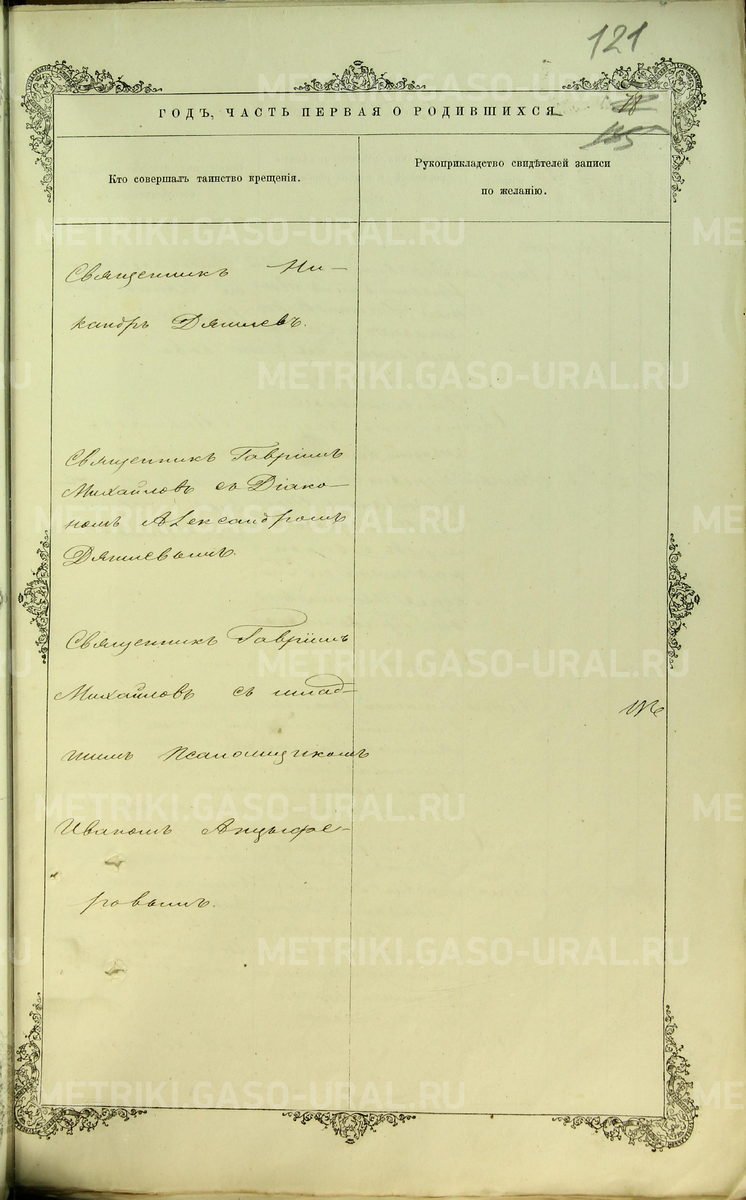 121
ГОДЪ, ЧАСТЬ ПЕРВАЯ О РОДИВШИХСЯ
78
185
Кто совершалъ таинство крещенія.
Рукоприкладство свидѣтелей записи
по желанію.
Священникъ Ни-
кандръ Дягилевъ.
Священникъ Гавріилъ
Михайловъ съ Діако-
номъ Александромъ
Дягилевымъ.
Священникъ Гавріилъ
Михайловъ съ млад-
шимъ Псаломщикомъ
Иваномъ Анцыфе-
ровымъ.
METRIKI.GASO-URAL.RU